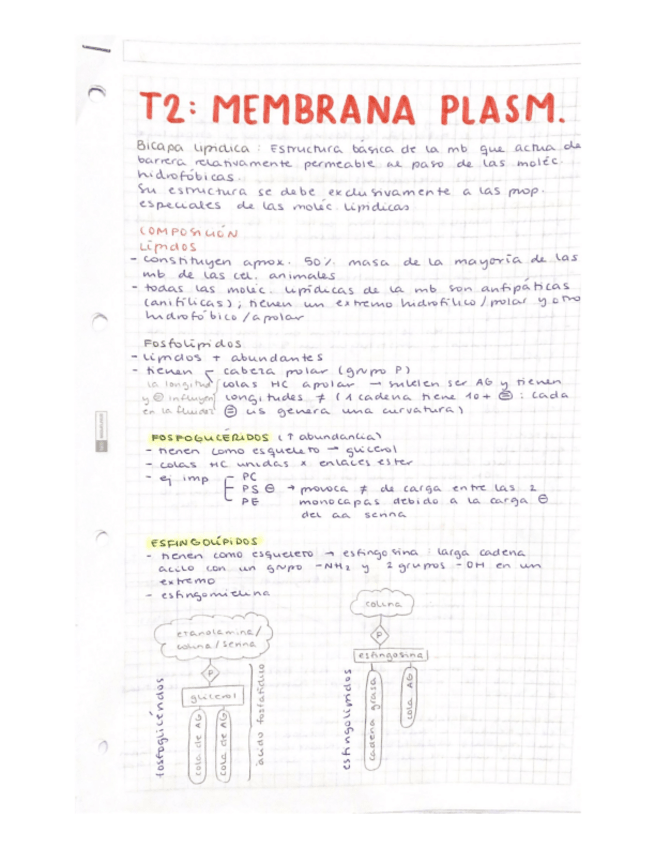 T2: MEMBRANA PLASM.
Bicapa lipídica : Estructura básica de la mb que actua de
barrera relativamente permeable al paso de las moléc.
hidrofóbicas.
Su estructura se debe exclusivamente a las prop.
especiales de las moléc. lipídicas
COMPOSICIÓN
Lípidos
- constituyen aprox. 50% masa de la mayoría de las
mb de las cel. animales
- todas las moléc. lipídicas de la mb son antipáticas
(anifílicas); tienen un extremo hidrofílico / polar y otro
hidrofóbico / apolar
Fosfolípidos
- Lípidos + abundantes
- tienen cabeza polar (grupo P)
colas HC apolar → suelen ser AG y tienen
longitudes ≠ (1 cadena tiene 1 o + ⊜ : cada
⊜ cis genera una curvatura)
la longitud
y ⊜ influyen
en la fluidez
FOSFOGLICÉRIDOS (↑ abundancia)
- tienen como esqueleto → glicerol
- colas HC unidas x enlaces ester
- ej imp
PC
PS ⊖ → provoca ≠ de carga entre las 2
monocapas debido a la carga ⊖
del aa serina
PE
ESFINGOLÍPIDOS
- tienen como esqueleto → esfingosina : larga cadena
acilo con un grupo -NH2 y 2 grupos -OH en un
extremo
- esfingomielina
etanolamina/
colina/serina
P
glicerol
cola de AG
cola de AG
fosfoglicéridos
ácido fosfatídico
colina
P
esfingosina
cadena grasa
cola AG
esfingolípidos